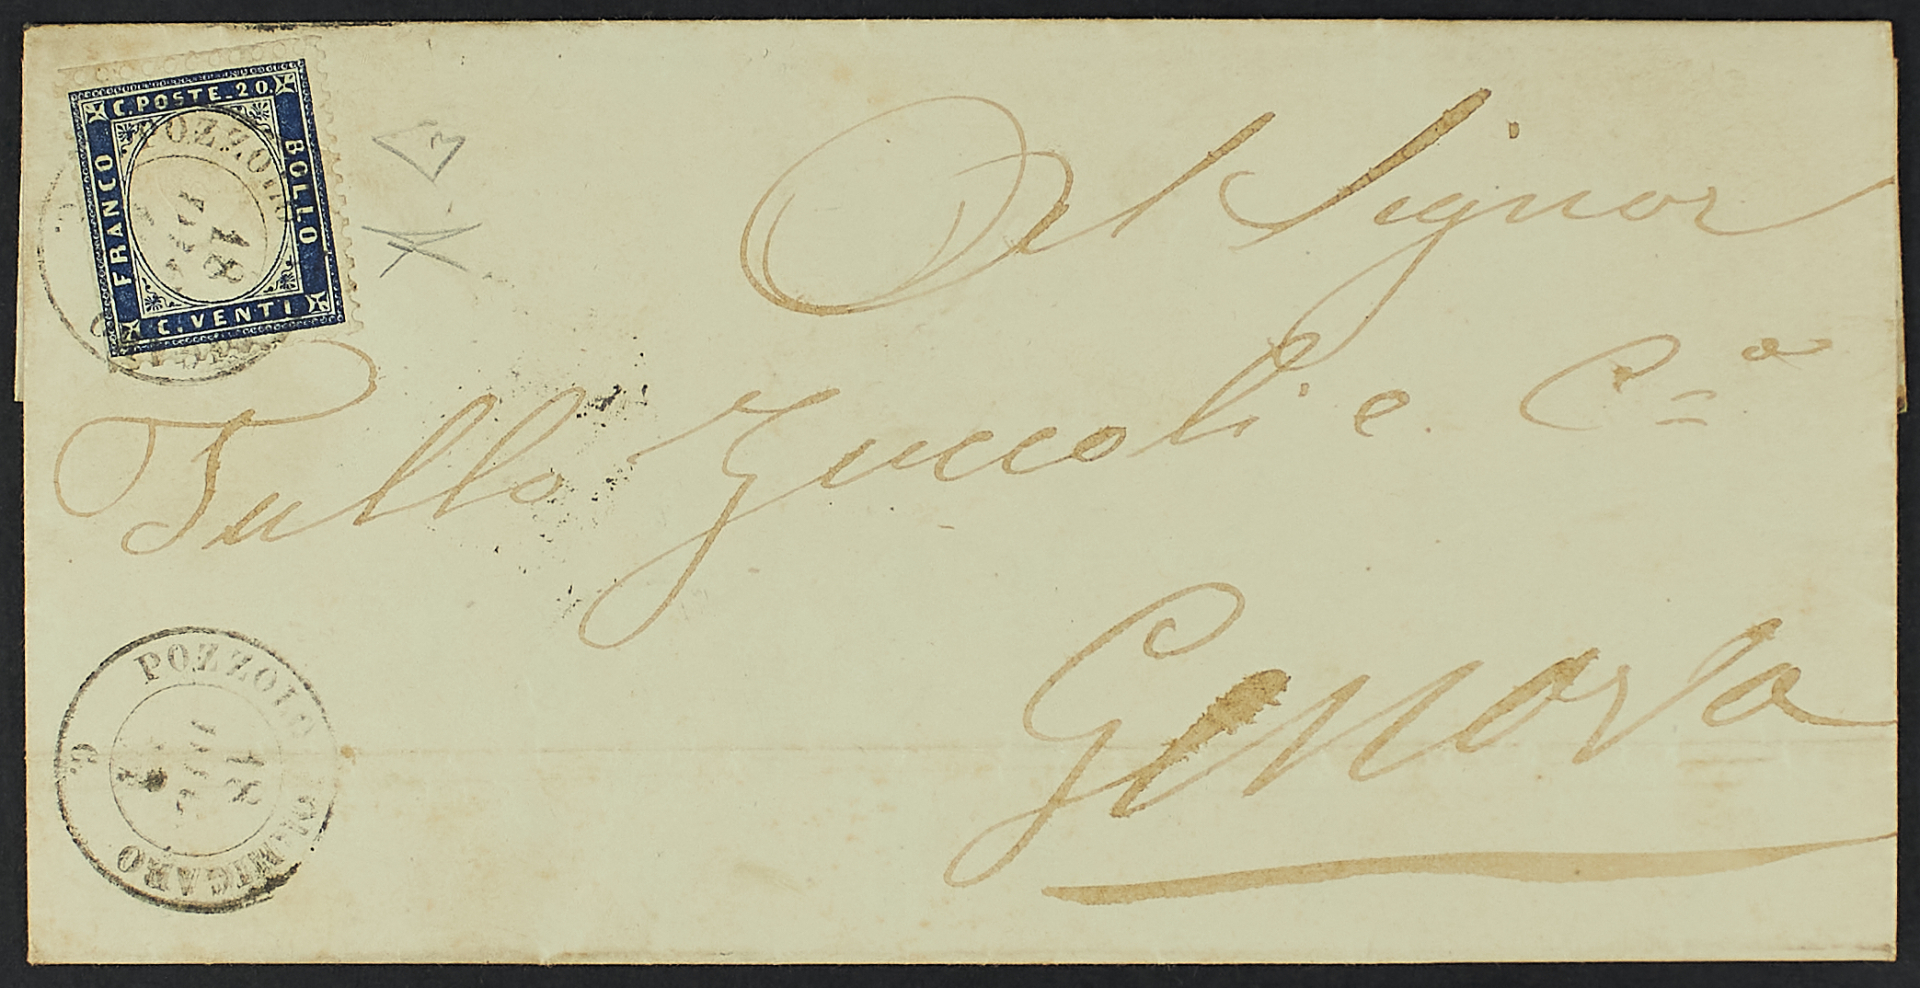 C. POSTE. 20.
FRANCO
BOLLO
C. VENTI
POZZOLO
18
Al Signor
Tullo Zuccoli e. C.a
Genova
POZZOLO FORMIGARO
18